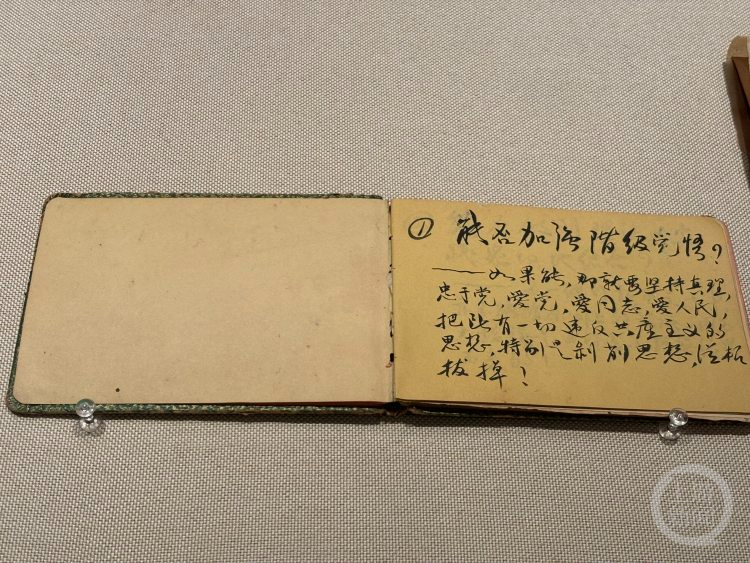 ① 能否加强階级觉悟?
——如果能,那就要坚持真理,
忠于党,爱党,爱同志,爱人民,
把所有一切违反共产主义的
思想,特别是剥削思想,根
拔掉!
上游
新闻